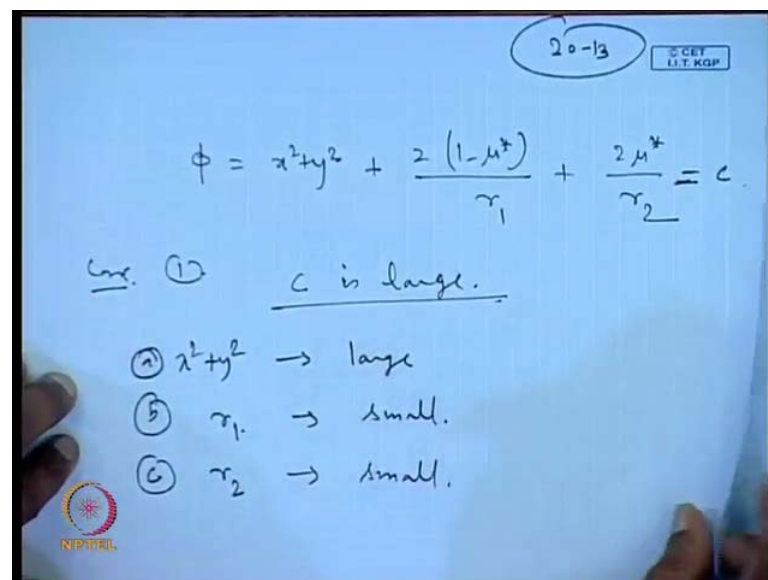 20-13
© CET
I.I.T. KGP
ϕ = x²+y² + 2(1-μ*)/r₁ + 2μ*/r₂ = c.
Case. ① c is large.
ⓐ x²+y² → large
ⓑ r₁. → small.
ⓒ r₂ → small.
NPTEL